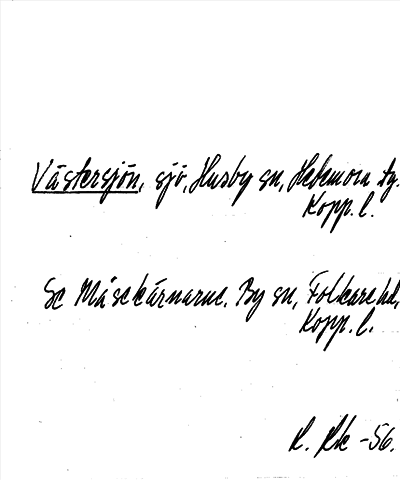 Västersjön, sjö, Husby sn, Hedemora tg.
Kopp. l.
Se Måsckärnarne. By sn, Folkare hd,
Kopp. l.
R. Rk -56.